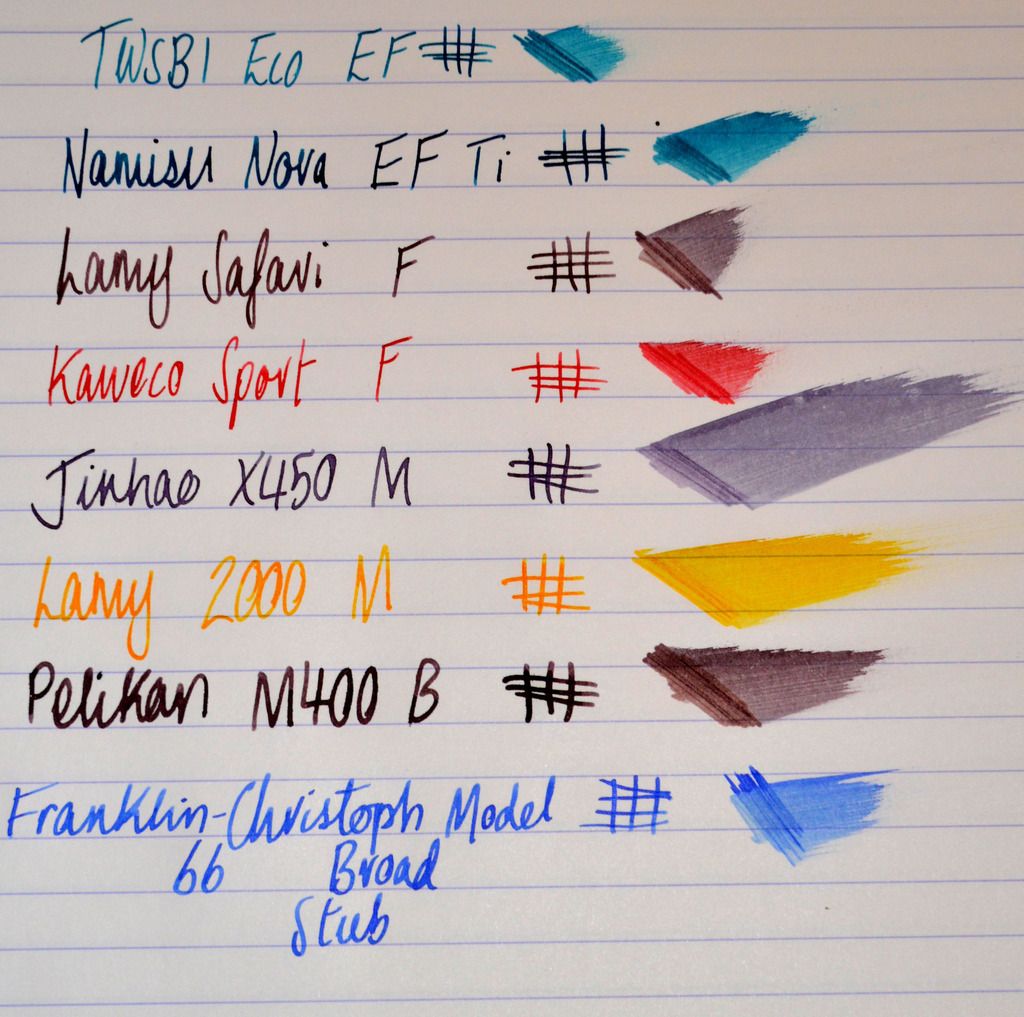 TWSBI Eco EF
Namisu Nova EF Ti
Lamy Safari F
Kaweco Sport F
Jinhao X450 M
Lamy 2000 M
Pelikan M400 B
Franklin-Christoph Model
66 Broad
Stub